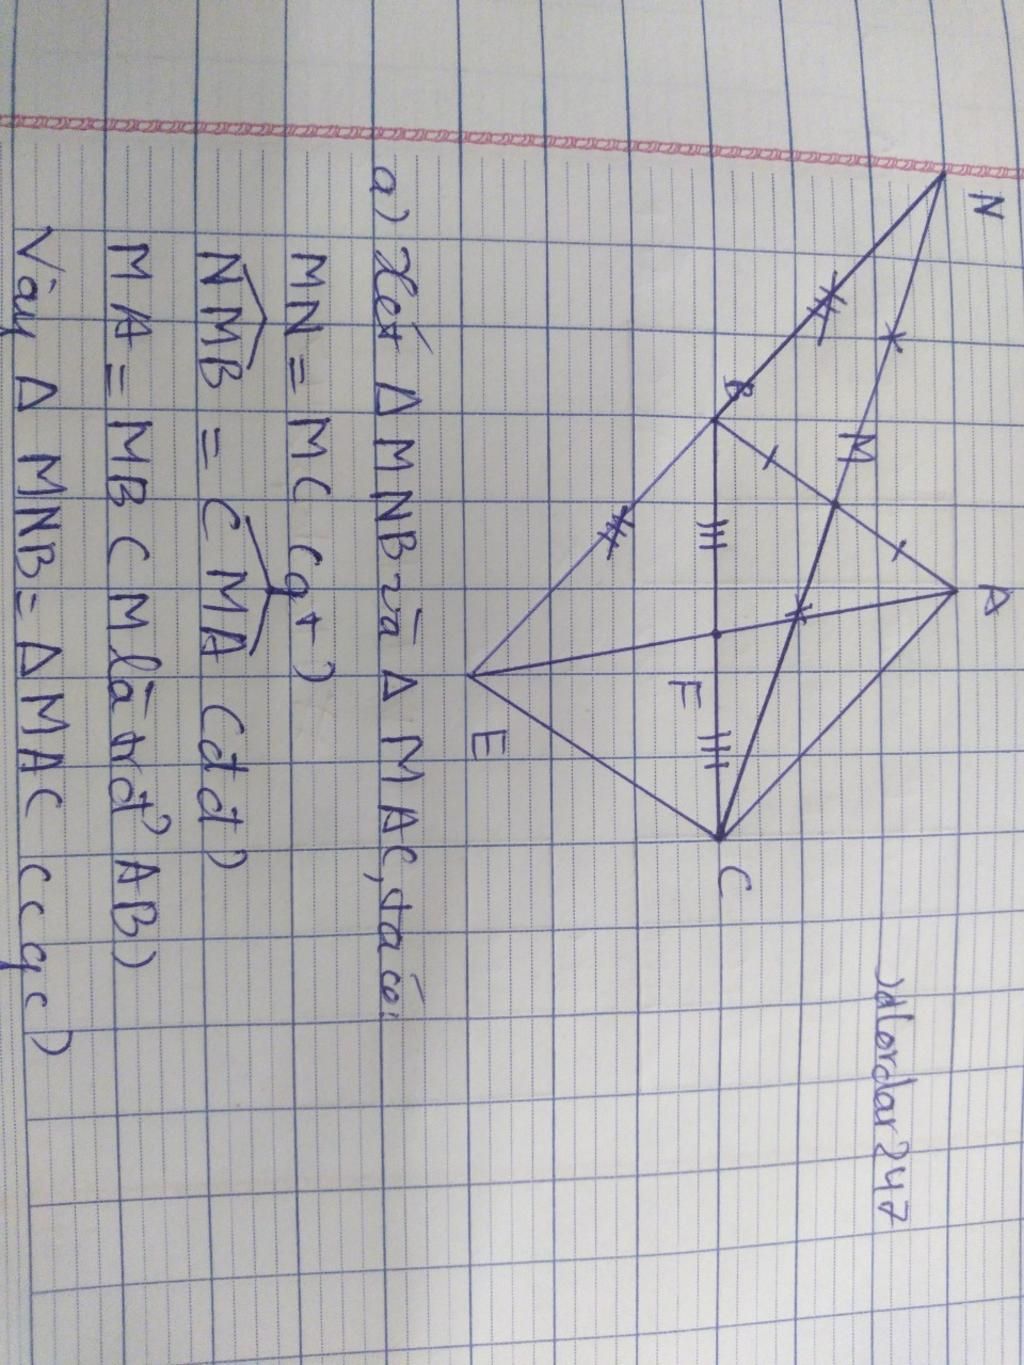 N
A
)dlordar247
M
B
F
C
E
a) Xét Δ MNB và Δ MAC, ta có:
MN = MC (gt)
NMB = CMA (đđ)
MA = MB (M là trđ' AB)
Vậy Δ MNB = Δ MAC (cgc)